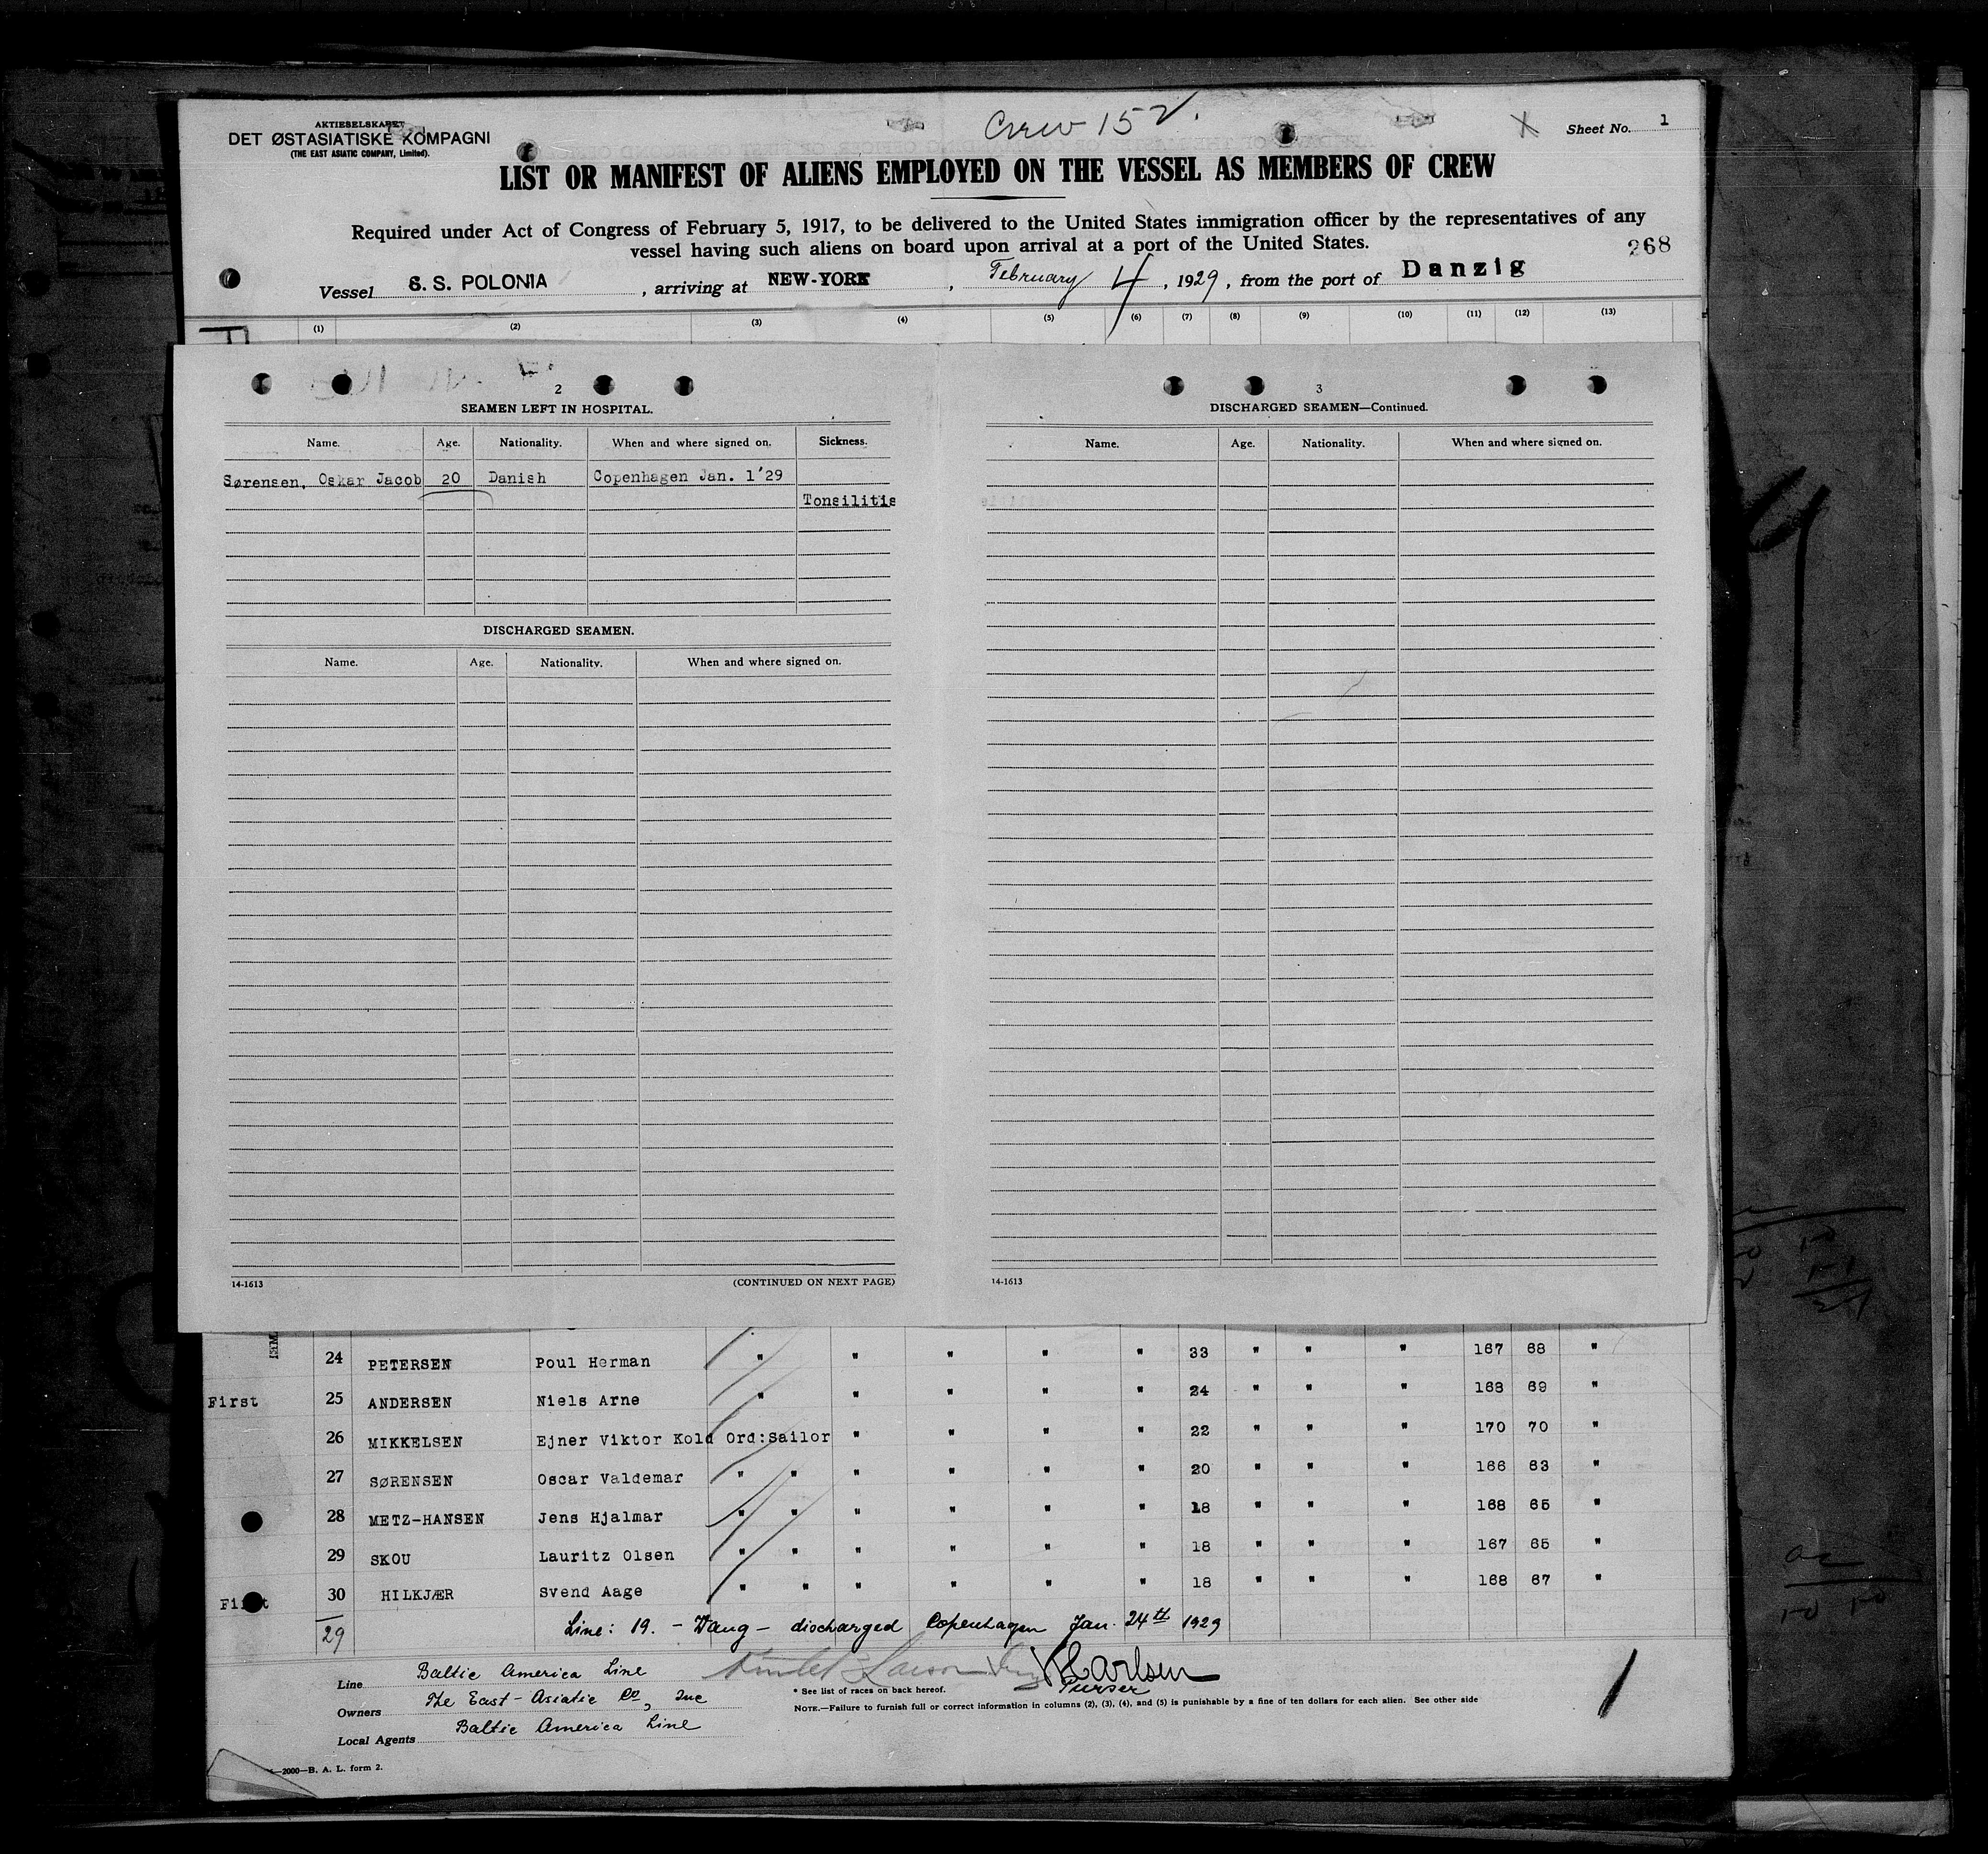 AKTIESELSKABET
DET ØSTASIATISKE KOMPAGNI
(THE EAST ASIATIC COMPANY, Limited).
Crew 152.
Sheet No. 1
LIST OR MANIFEST OF ALIENS EMPLOYED ON THE VESSEL AS MEMBERS OF CREW
Required under Act of Congress of February 5, 1917, to be delivered to the United States immigration officer by the representatives of any
vessel having such aliens on board upon arrival at a port of the United States.
268
Vessel S. S. POLONIA, arriving at NEW-YORK, February 4, 1929, from the port of Danzig
(1) (2) (3) (4) (5) (6) (7) (8) (9) (10) (11) (12) (13)
2
SEAMEN LEFT IN HOSPITAL.
Name. Age. Nationality. When and where signed on. Sickness.
Sørensen, Oskar Jacob 20 Danish Copenhagen Jan. 1'29
Tonsilitis
DISCHARGED SEAMEN.
Name. Age. Nationality. When and where signed on.
14-1613 (CONTINUED ON NEXT PAGE)
3
DISCHARGED SEAMEN—Continued.
Name. Age. Nationality. When and where signed on.
14-1613
24 PETERSEN Poul Herman " " " " " 33 " " " 167 68 "
First 25 ANDERSEN Niels Arne " " " " " 24 " " " 168 69 "
26 MIKKELSEN Ejner Viktor Kold Ord:Sailor " " " " 22 " " " 170 70 "
27 SØRENSEN Oscar Valdemar " " " " " " 20 " " " 166 63 "
28 METZ-HANSEN Jens Hjalmar " " " " " " 18 " " " 168 65 "
29 SKOU Lauritz Olsen " " " " " " 18 " " " 167 65 "
First 30 HILKJÆR Svend Aage " " " " " " 18 " " " 168 67 "
29 Line: 19. - Waug - discharged Copenhagen Jan. 24th 1929
Line Baltic America Line
Carlsen
Purser
Owners The East-Asiatic Co, Inc
Local Agents Baltic America Line
* See list of races on back hereof.
NOTE.—Failure to furnish full or correct information in columns (2), (3), (4), and (5) is punishable by a fine of ten dollars for each alien. See other side
—2000—B. A. L. form 2.